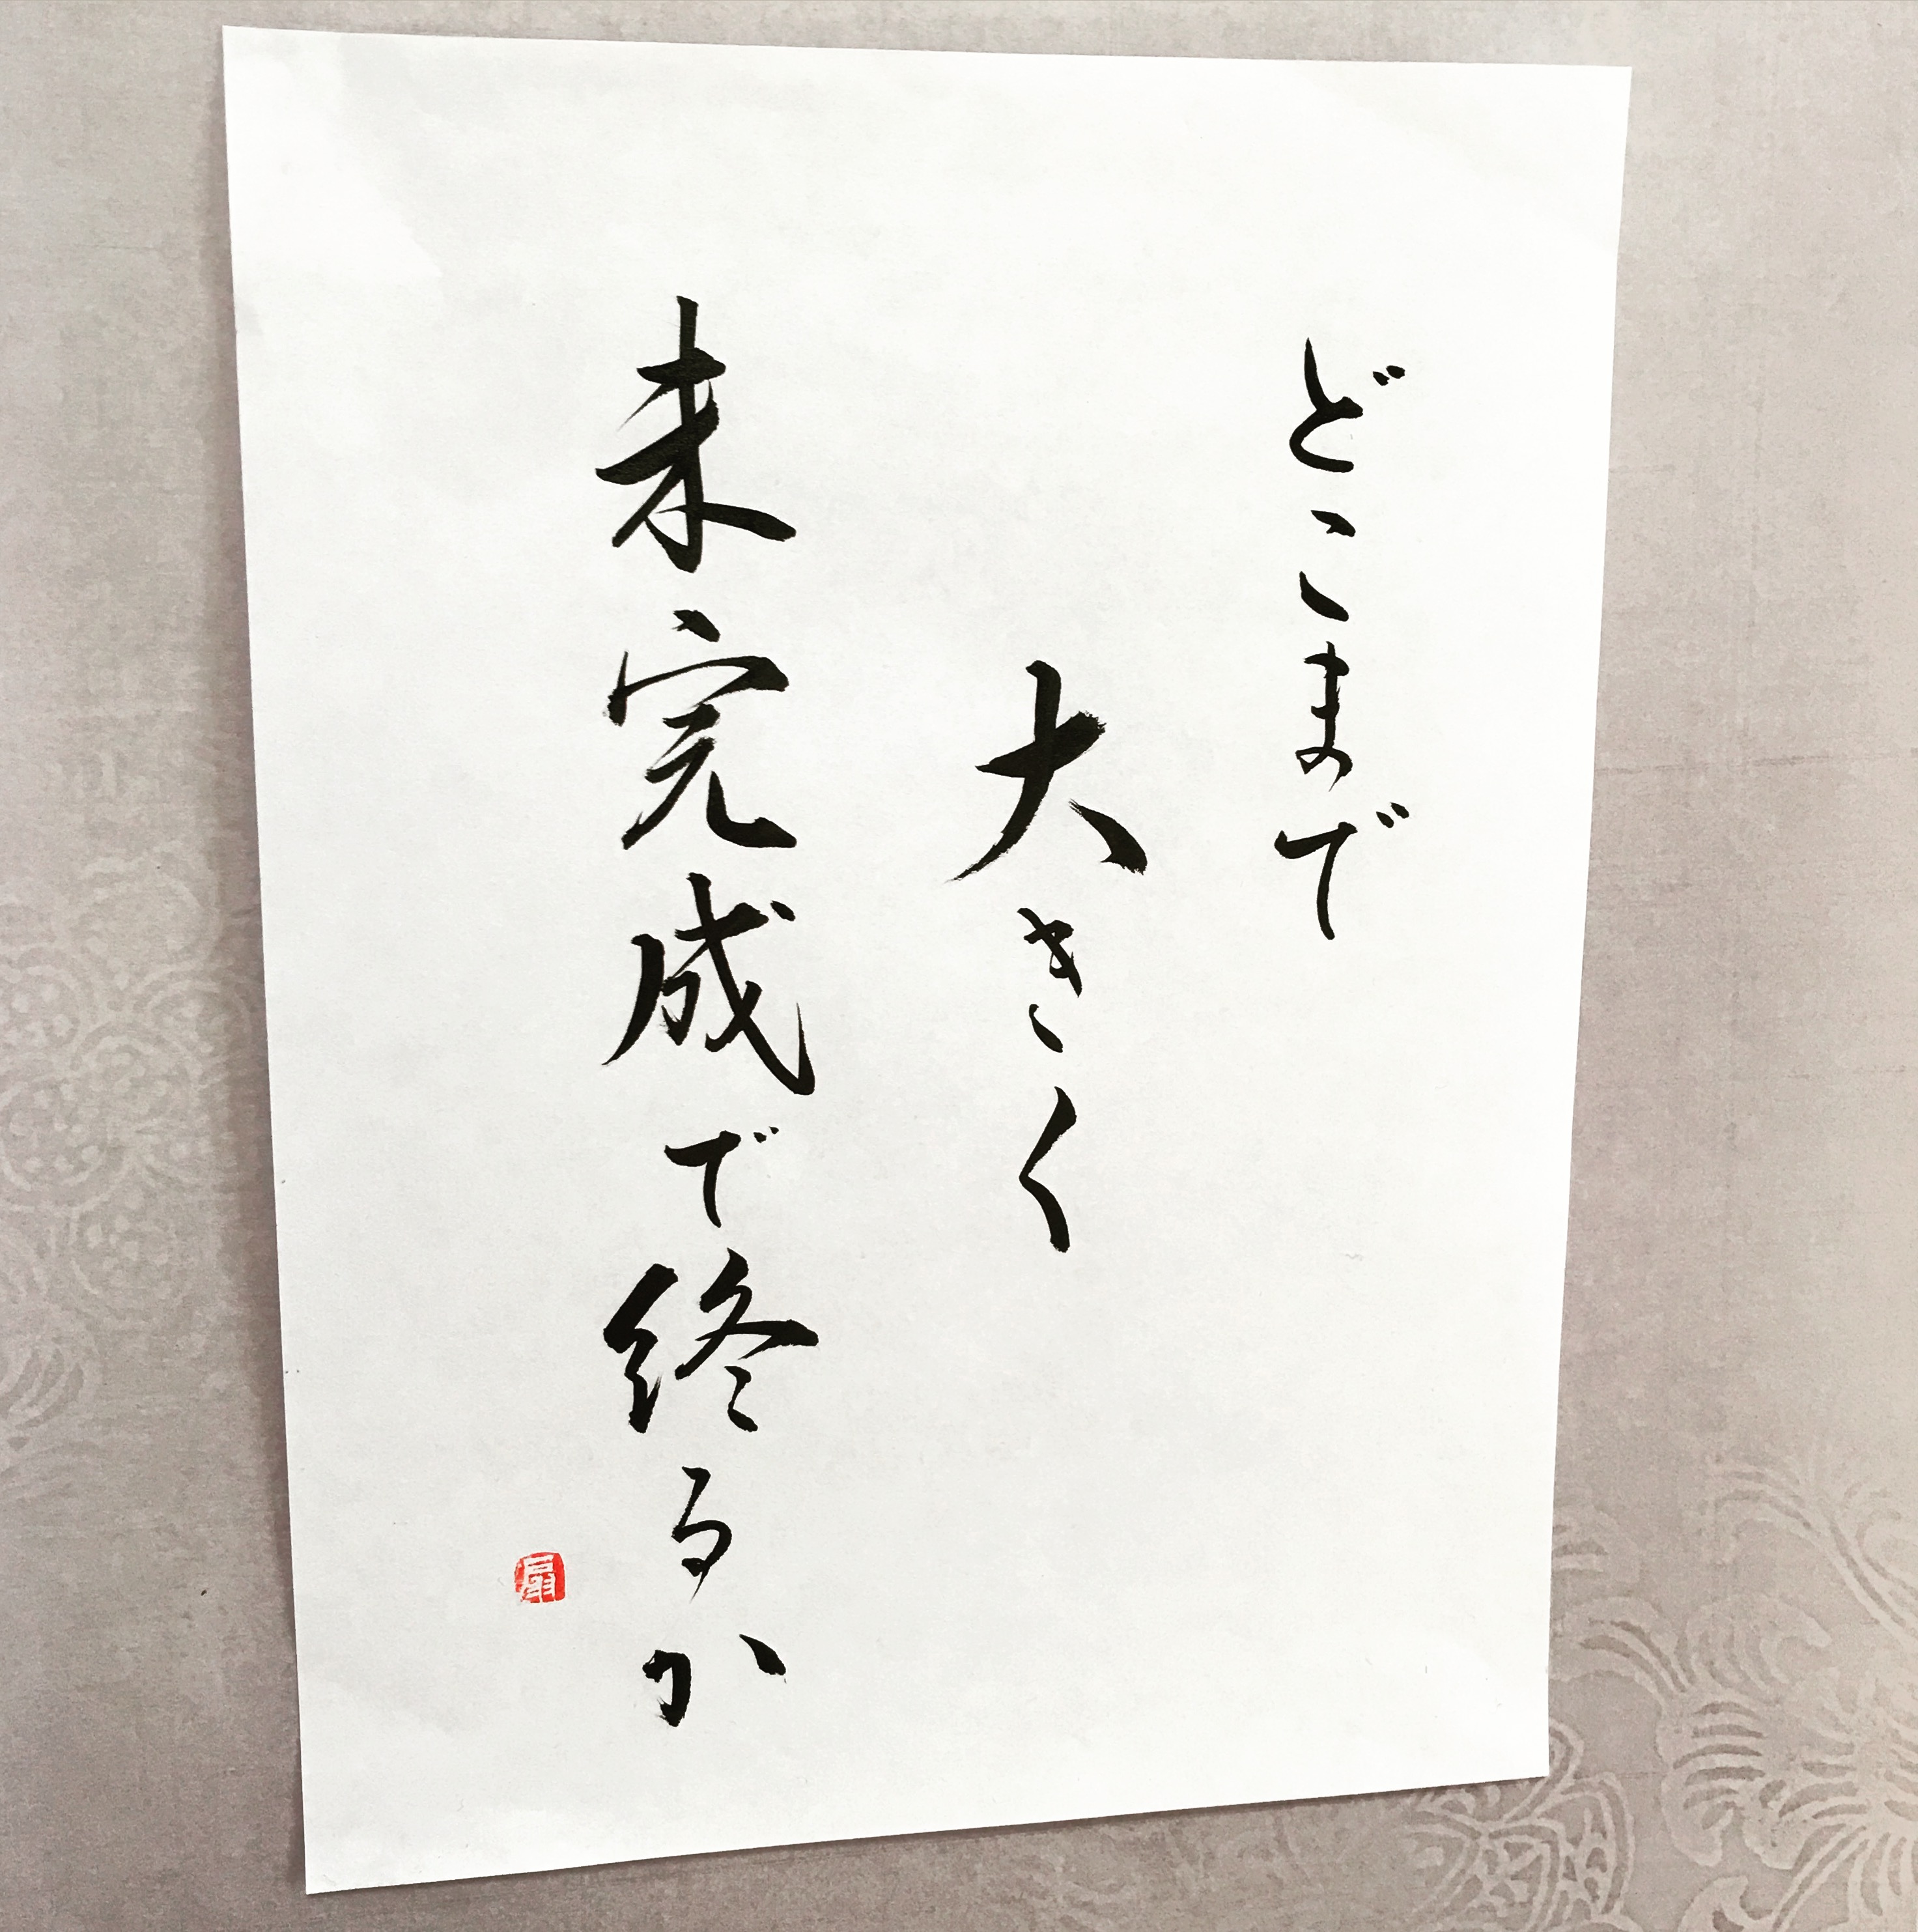 どこまで
大きく
未完成で終るか
扇